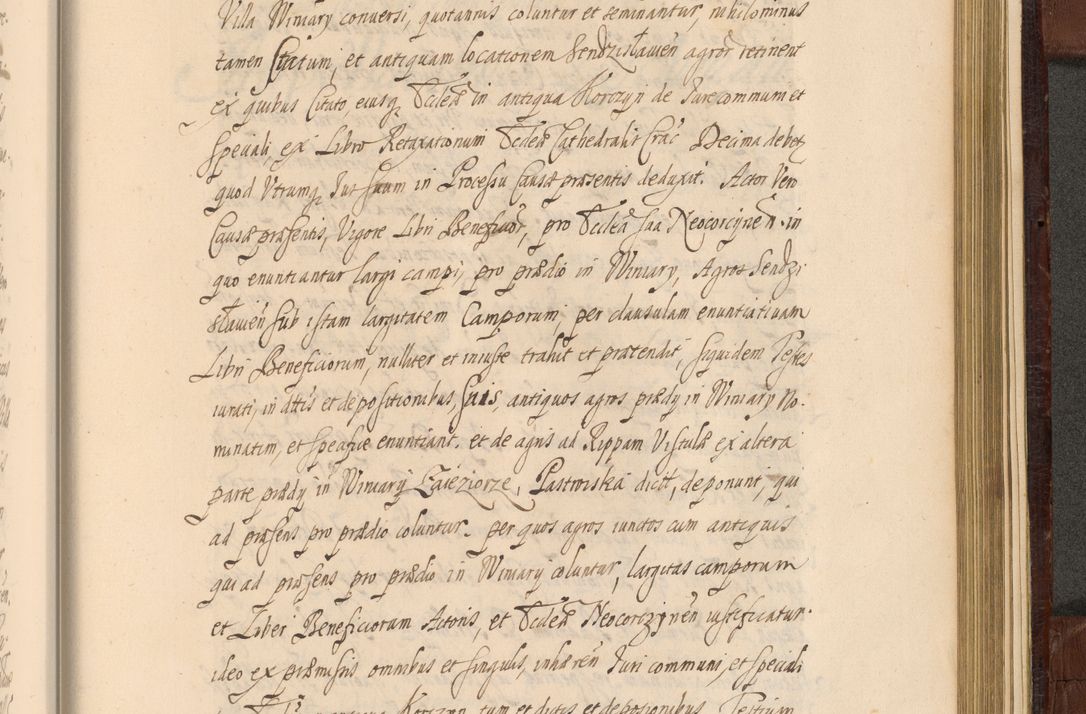 Villa Winiary conversi, quotannis coluntur et seminantur, nihilominus
tamen statum, et antiquam locationem Sendzislavien̄ agror̄ retinent
ex quibus Citato, eiusq̨ Eccłeæ in antiqua Korczyn de Iure communi et
speciali, ex Libro Retaxationum Eccłeæ Cathedralis Crac̄ Decima debet̨
quod Utrumq̨ Ius suum in Processu Causæ præsentis deduxit. Actor Vero
Causæ præsentis, Vigore Libri Beneficior̄, pro Eccłea sua Neocorcijnen̄ in
quo enuntiantur largi campi, pro prædio in Winiary, Agros Sendzi
slavien̄ sub istam largitatem Camporum, per clausulam enuntiativam
Libri Beneficiorum, nulliter et iniuste trahit et prætendit, siquidem Testes
iurati, in dictis et depositionibus, suis, antiquos agros prædij in Winiary No-
minatim, et specifice enuntiant. et de agris ad Rippam Vistulæ ex altera
parte prædij in Winiary Zaieziorze, Pastwiska dictis, deponunt, qui
ad præsens pro prædio coluntur. per quos agros iunctos cum antiquis
qui ad præsens pro prædio in Winiary coluntur, largitas camporum
et Liber Beneficiorum Actoris, et Eccłeæ Neocorczynen̄ iustificatur.
ideo ex præmissis omnibus et singulis, inhæren̄ Iuri communi, et speciali
Korczyn, tum et dictis et depositionibus Testium